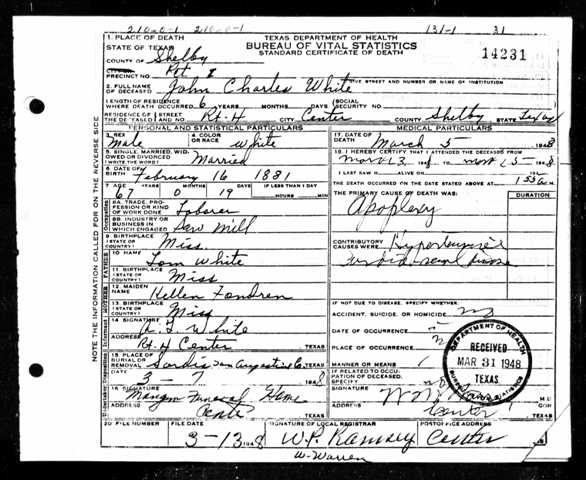 210-0-1 210-0-1 131-1 31
TEXAS DEPARTMENT OF HEALTH
BUREAU OF VITAL STATISTICS
STANDARD CERTIFICATE OF DEATH
14231
1. PLACE OF DEATH
STATE OF TEXAS
COUNTY OF Shelby
PRECINCT NO. Pct I
GIVE STREET AND NUMBER OR NAME OF INSTITUTION
2. FULL NAME OF DECEASED John Charles White
LENGTH OF RESIDENCE WHERE DEATH OCCURRED 6 YEARS MONTHS DAYS SOCIAL SECURITY NO.
RESIDENCE OF THE DECEASED STREET AND NO. Rt. 4 CITY Center COUNTY Shelby STATE Texas
PERSONAL AND STATISTICAL PARTICULARS
3. SEX Male
4. COLOR OR RACE White
5. SINGLE, MARRIED, WIDOWED OR DIVORCED (WRITE IN) Married
6. DATE OF BIRTH February 16 1881
7. AGE YEARS MONTHS DAYS IF LESS THAN 1 DAY
67 0 19 HOURS MIN.
8A. TRADE, PROFESSION OR KIND OF WORK DONE Laborer
8B. INDUSTRY OR BUSINESS IN WHICH ENGAGED Saw Mill
9. BIRTHPLACE (STATE OR COUNTRY) Miss.
10. NAME Tom White
11. BIRTHPLACE (STATE OR COUNTRY) Miss
12. MAIDEN NAME Hellen Fondren
13. BIRTHPLACE (STATE OR COUNTRY) Miss
14. SIGNATURE White
ADDRESS Rt. 4 Center TEXAS
15. PLACE OF BURIAL OR REMOVAL Sardis San Augustine Co. TEXAS
DATE 3-7 1948
16. SIGNATURE Mangum Funeral Home
ADDRESS Center TEXAS
MEDICAL PARTICULARS
17. DATE OF DEATH March 5- 1948
18. I HEREBY CERTIFY THAT I ATTENDED THE DECEASED FROM
I LAST SAW H ALIVE ON
THE DEATH OCCURRED ON THE DATE STATED ABOVE AT
THE PRIMARY CAUSE OF DEATH WAS:
DURATION
Apoplexy
CONTRIBUTORY CAUSES WERE
IF NOT DUE TO DISEASE, SPECIFY WHETHER:
ACCIDENT, SUICIDE, OR HOMICIDE no
DATE OF OCCURRENCE
PLACE OF OCCURRENCE
MANNER OR MEANS
IF RELATED TO OCCUPATION OF DECEASED, SPECIFY
SIGNATURE
ADDRESS Center TEXAS
DEPARTMENT OF HEALTH
RECEIVED
MAR 31 1948
TEXAS
BUREAU OF VITAL STATISTICS
20. FILE NUMBER FILE DATE SIGNATURE OF LOCAL REGISTRAR POSTOFFICE ADDRESS
3-13 1948 W.P. Ramsey Center TEXAS
W-Warren
NOTE THE INFORMATION CALLED FOR ON THE REVERSE SIDE